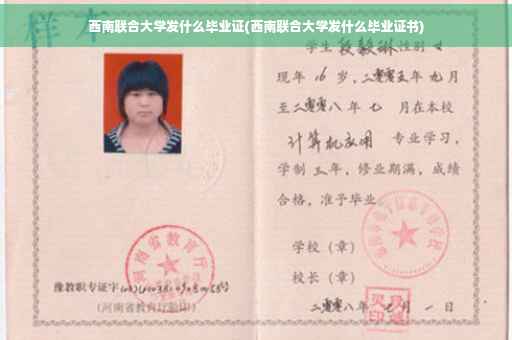 西南联合大学发什么毕业证(西南联合大学发什么毕业证书)
样本
学生 段毅琳 性别 女
现年 16 岁，二零零五年 九月
至二零零八年 七 月在本校
计算机应用 专业学习，
学制 三年，修业期满，成绩
合格，准予毕业
学校（章）
校长（章）
二零零八年 七月 一日
河南省教育厅
豫教职专证字
(河南省教育厅验印)